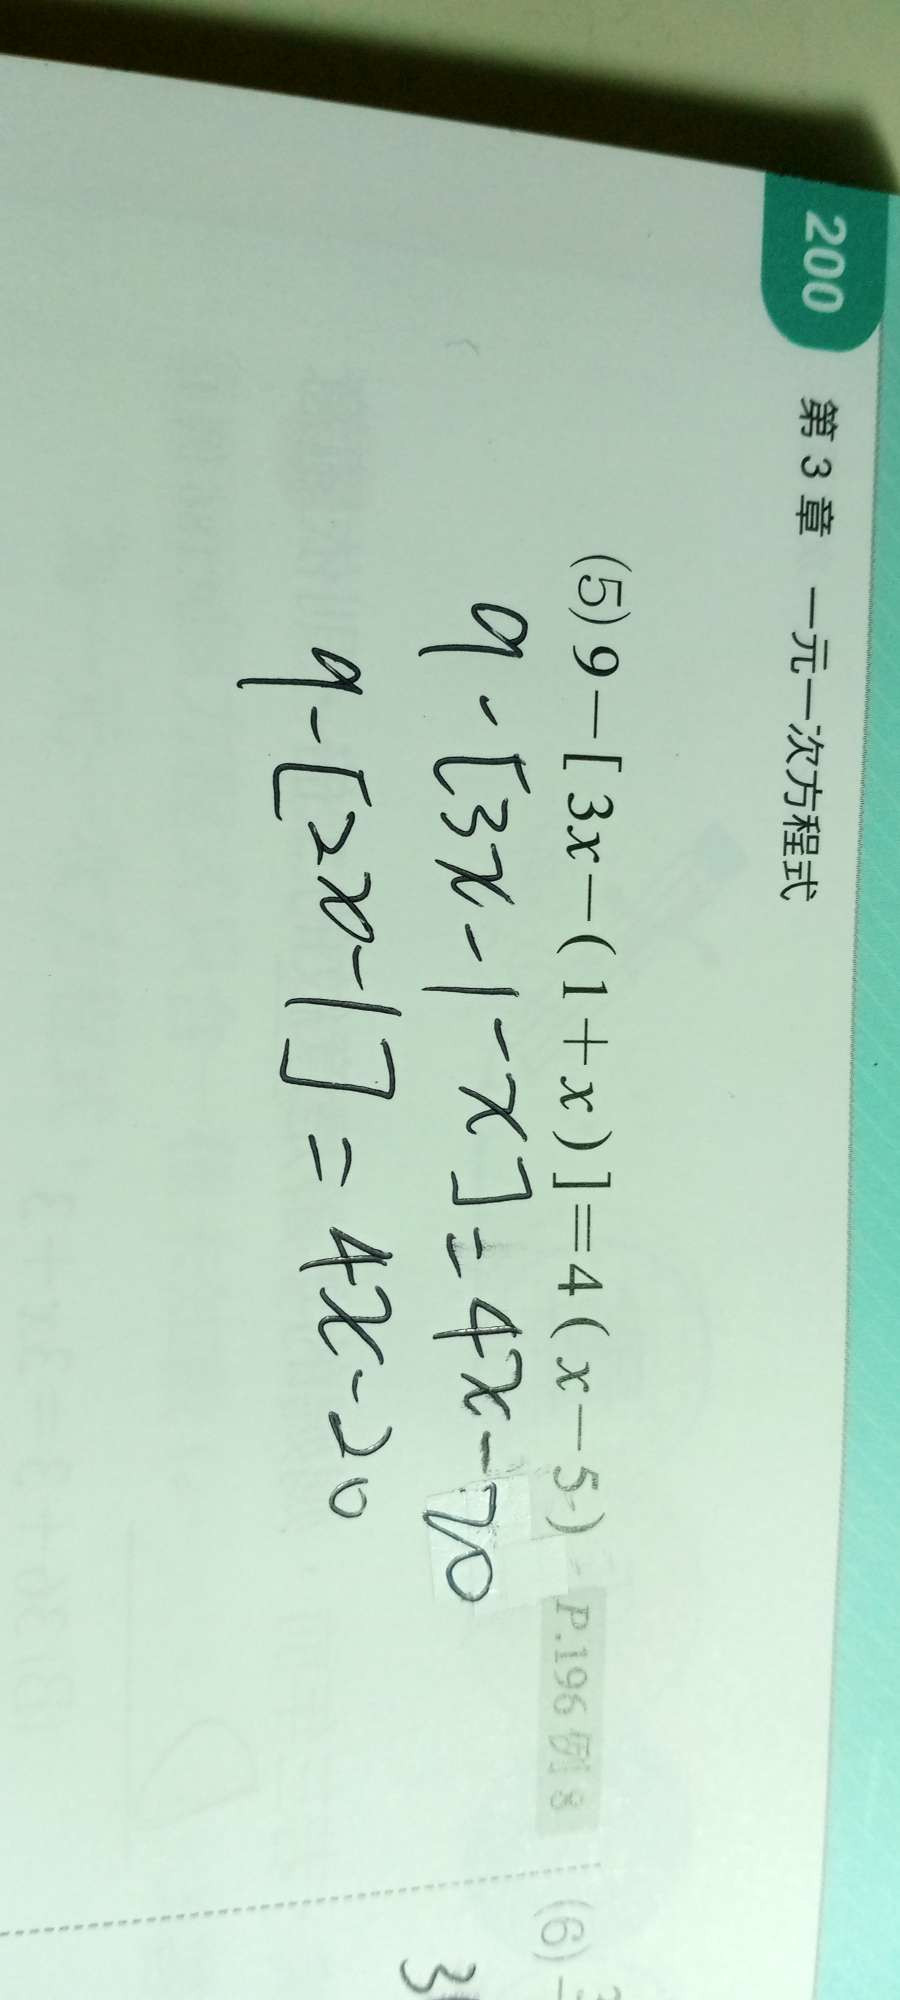 200 第3章 一元一次方程式
(5) 9-[3x-(1+x)]=4(x-5) P.196 例 8
9-[3x-1-x]=4x-20
9-[2x-1]=4x-20
(6)